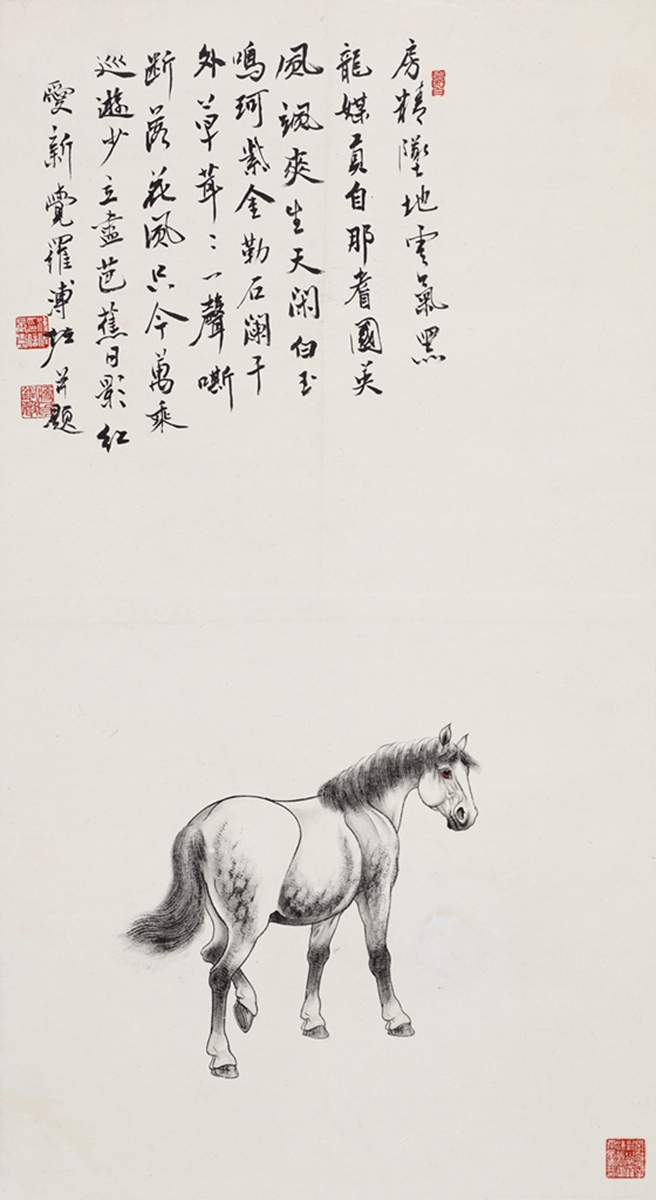 房精墜地雲氣黑
龍媒貢自那耆國英
風颯爽生天闲白玉
鳴珂紫金勒石瀾干
外草茸〻一聲嘶
断落花風只今萬乘
巡遊少立盡芭蕉日影紅
愛新覺羅溥佐并題